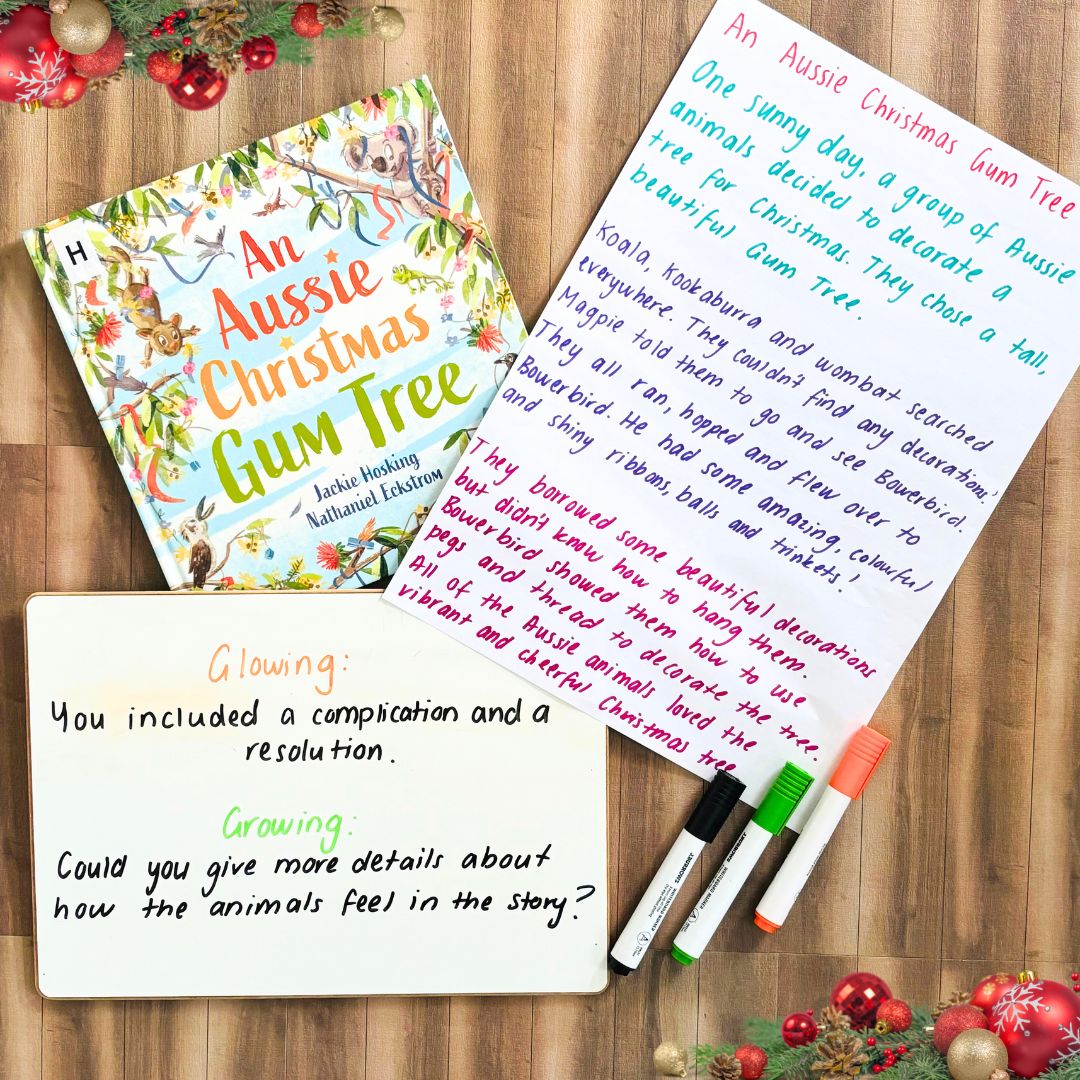 H
An
Aussie
Christmas
Gum Tree
Jackie Hosking
Nathaniel Eckstrom
An Aussie Christmas Gum Tree
One sunny day, a group of Aussie
animals decided to decorate a
tree for Christmas. They chose a tall,
beautiful Gum Tree.
Koala, Kookaburra and wombat searched
everywhere. They couldn't find any decorations!
Magpie told them to go and see Bowerbird.
They all ran, hopped and flew over to
Bowerbird. He had some amazing, colourful
and shiny ribbons, balls and trinkets!
They borrowed some beautiful decorations
but didn't know how to hang them.
Bowerbird showed them how to use
pegs and thread to decorate the tree.
All of the Aussie animals loved the
vibrant and cheerful Christmas tree
Glowing:
You included a complication and a
resolution.
Growing:
Could you give more details about
how the animals feel in the story?
WHITEBOARD MARKER
WHITEBOARD MARKER